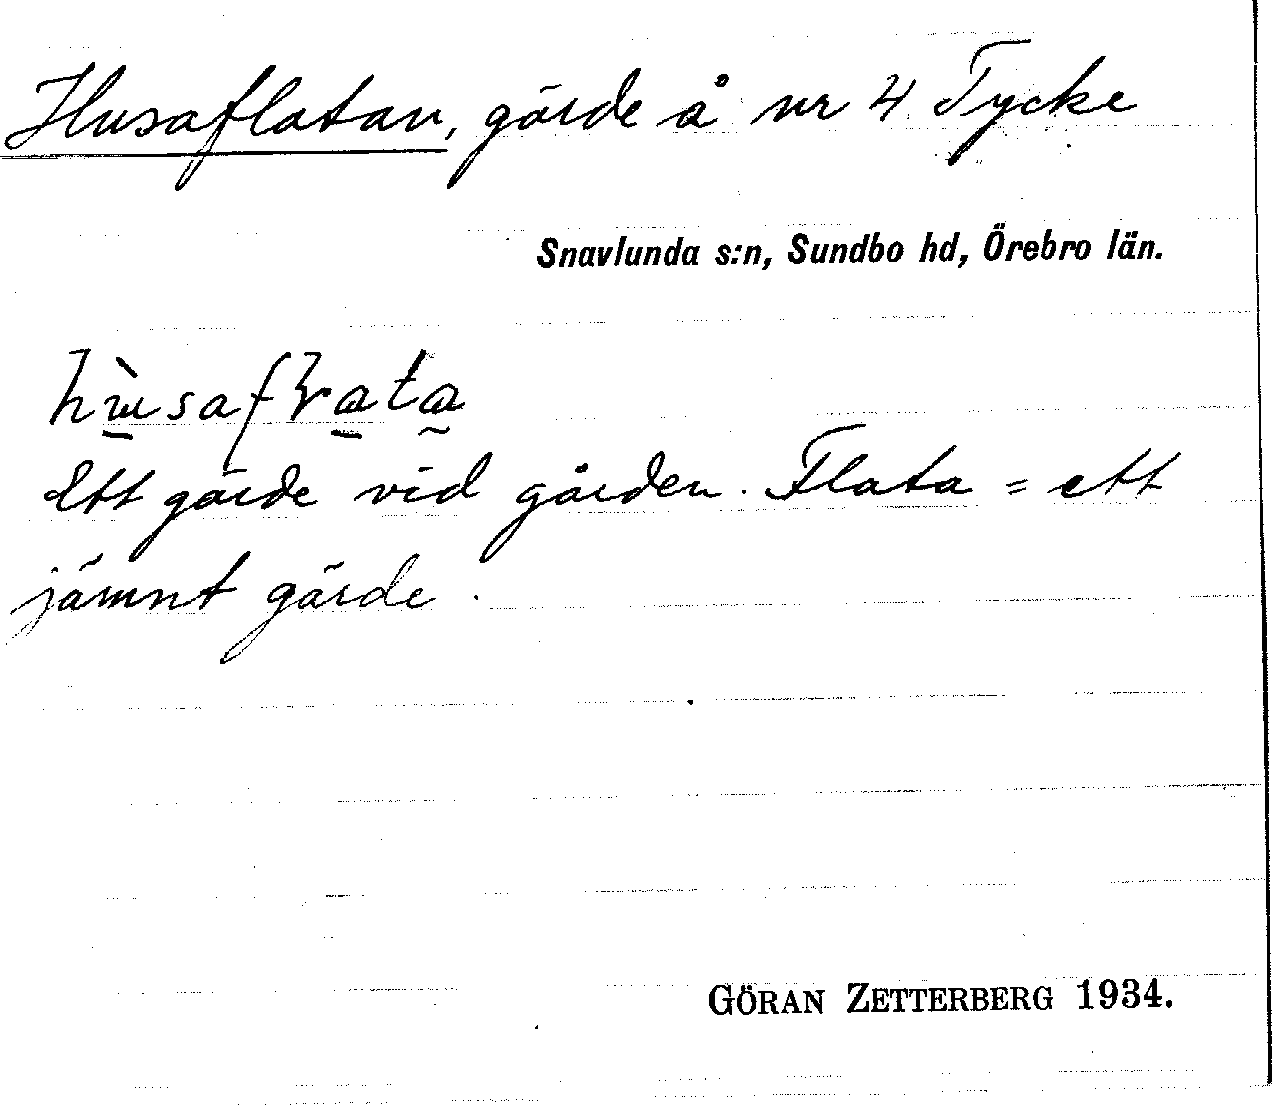 Husaflatan, gärde å nr 4 Tycke
Snavlunda s:n, Sundbo hd, Örebro län.
Ett gärde vid gården. Flata = ett
jämnt gärde.
GÖRAN ZETTERBERG 1934.